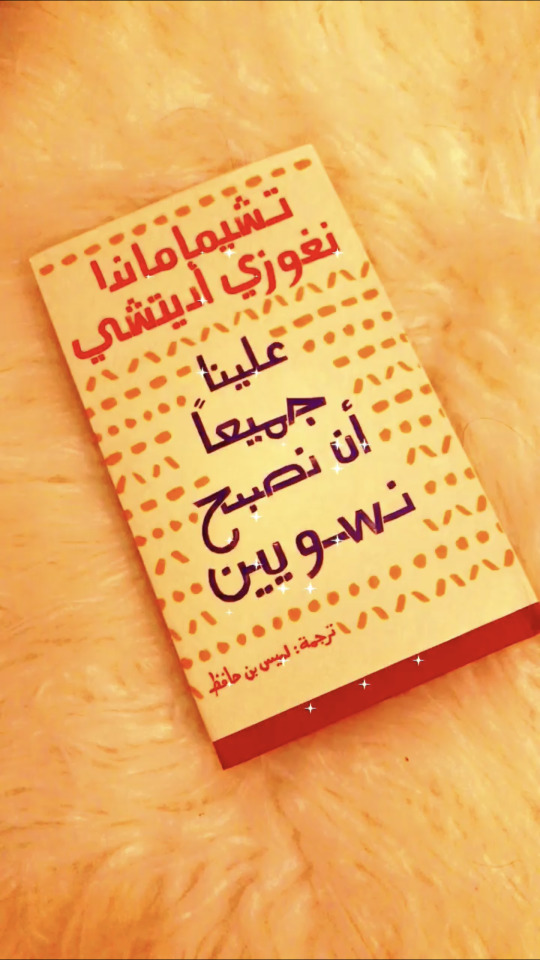 تشيماماندا
نغوزي أديتشي
علينا
جميعاً
أن نصبح
نسويين
ترجمة: لميس بن حافظ